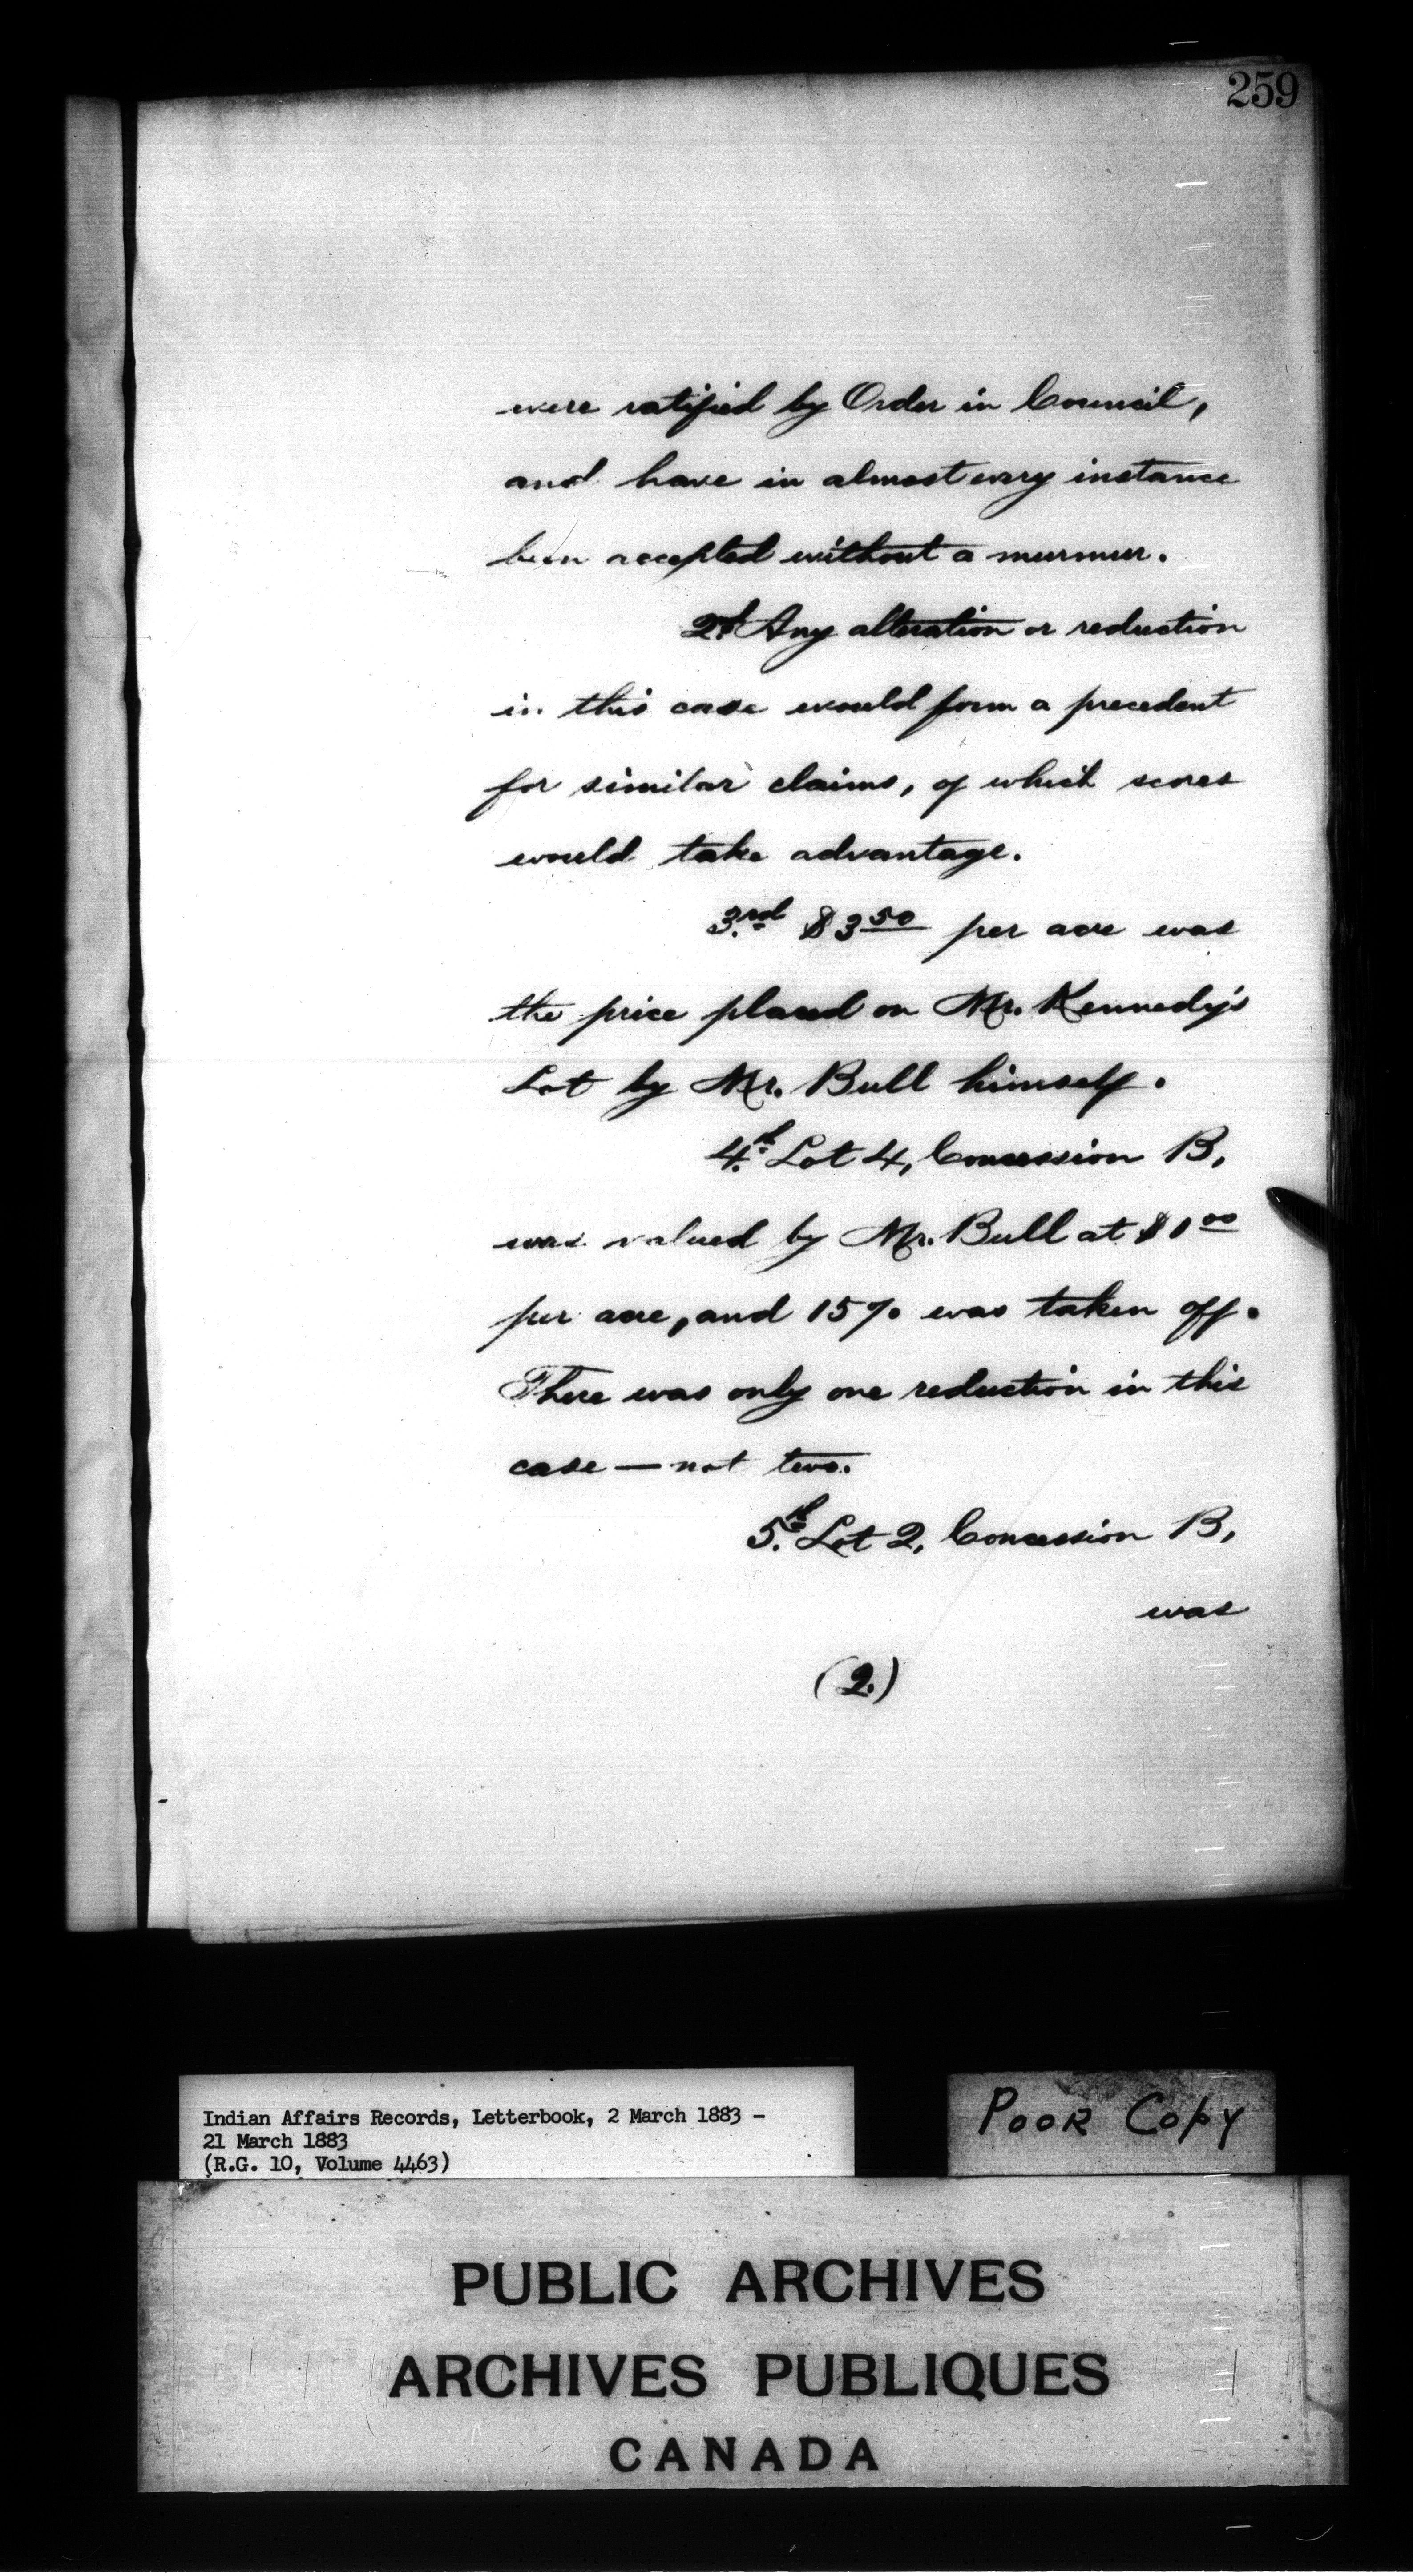 259
were ratified by Order in Council,
and have in almost every instance
been accepted without a murmur.
2nd. Any alteration or reduction
in this case would form a precedent
for similar claims, of which scores
would take advantage.
3.rd $3 50 per acre was
the price placed on Mr. Kennedy's
Lot by Mr. Bull himself.
4.th Lot 4, Concession B,
was valued by Mr. Bull at $1 00
per acre, and 15% was taken off.
There was only one reduction in this
case — not two.
5.th Lot 2, Concession B,
was
(2.)
Indian Affairs Records, Letterbook, 2 March 1883 -
21 March 1883
(R.G. 10, Volume 4463)
POOR COPY
PUBLIC ARCHIVES
ARCHIVES PUBLIQUES
CANADA